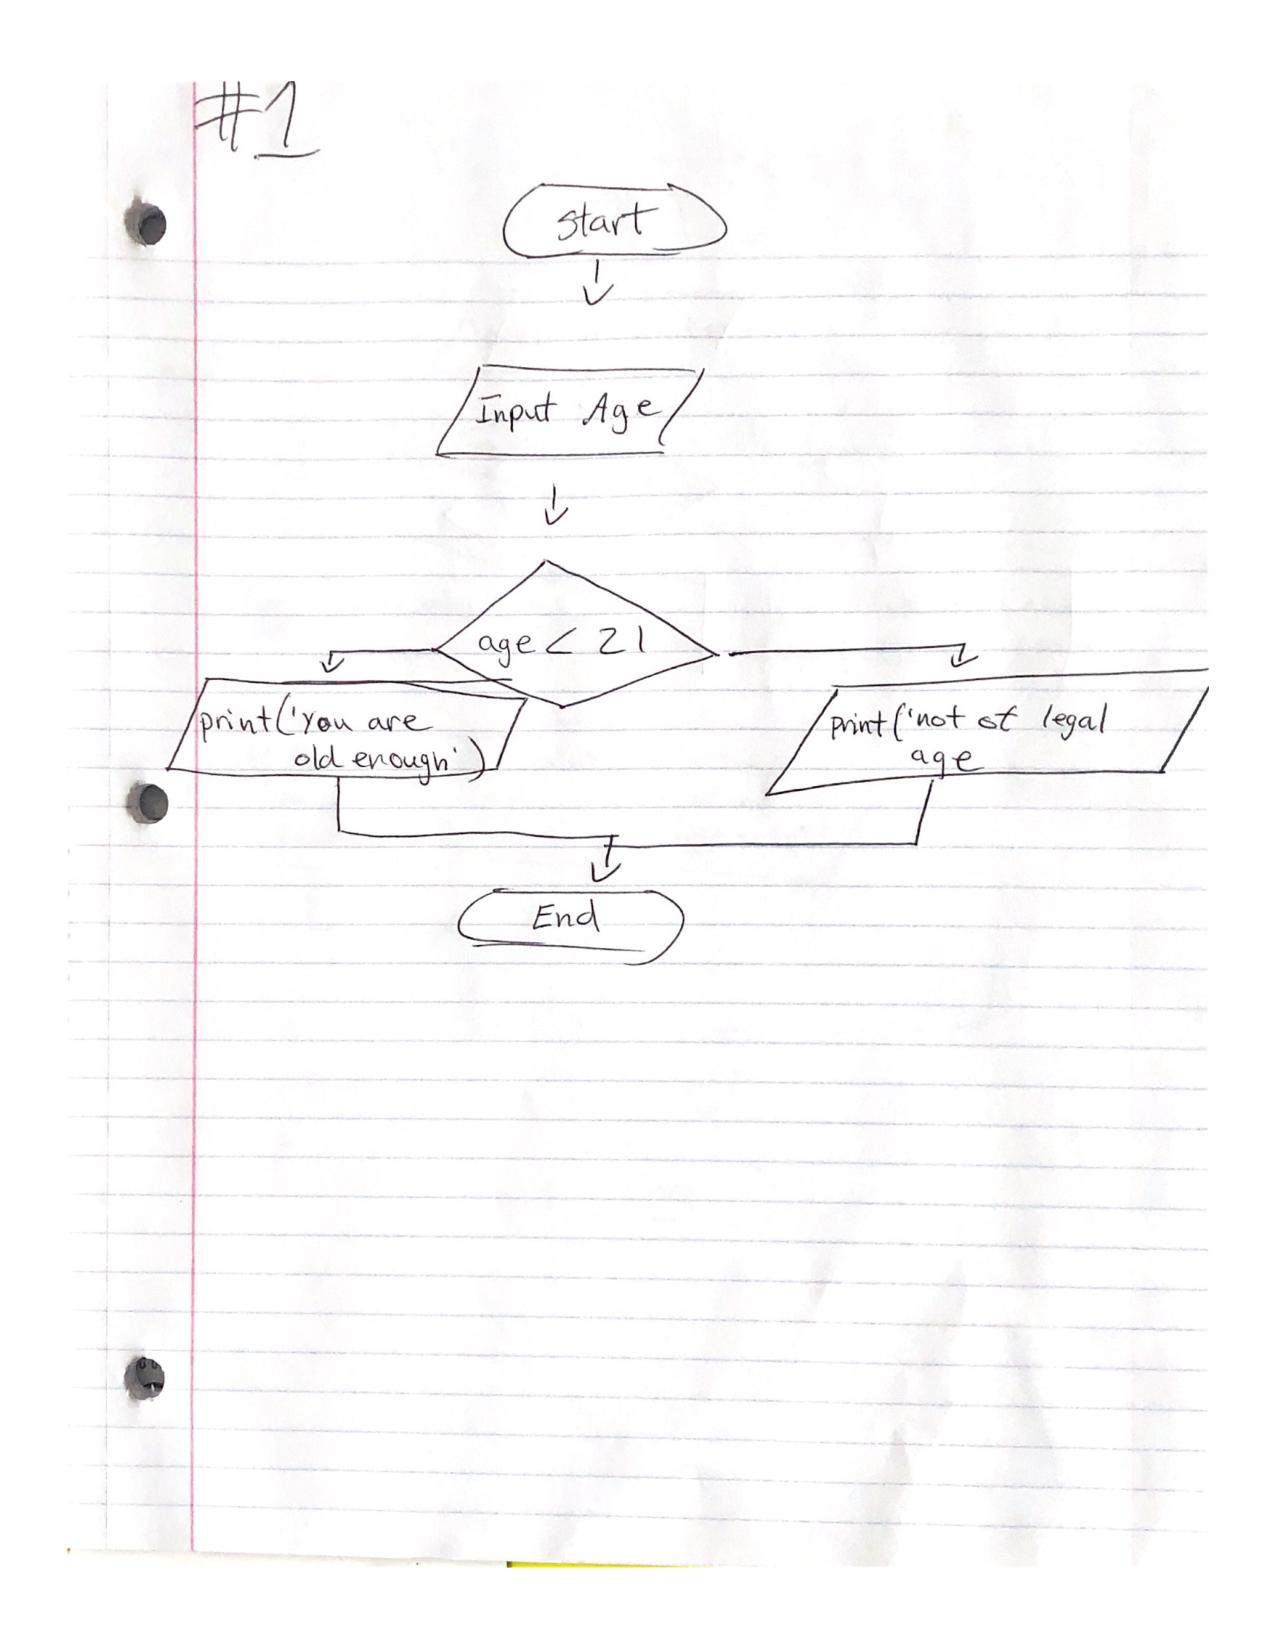 #1
start
Input Age
age < 21
print('You are
old enough')
print('not of legal
age
End